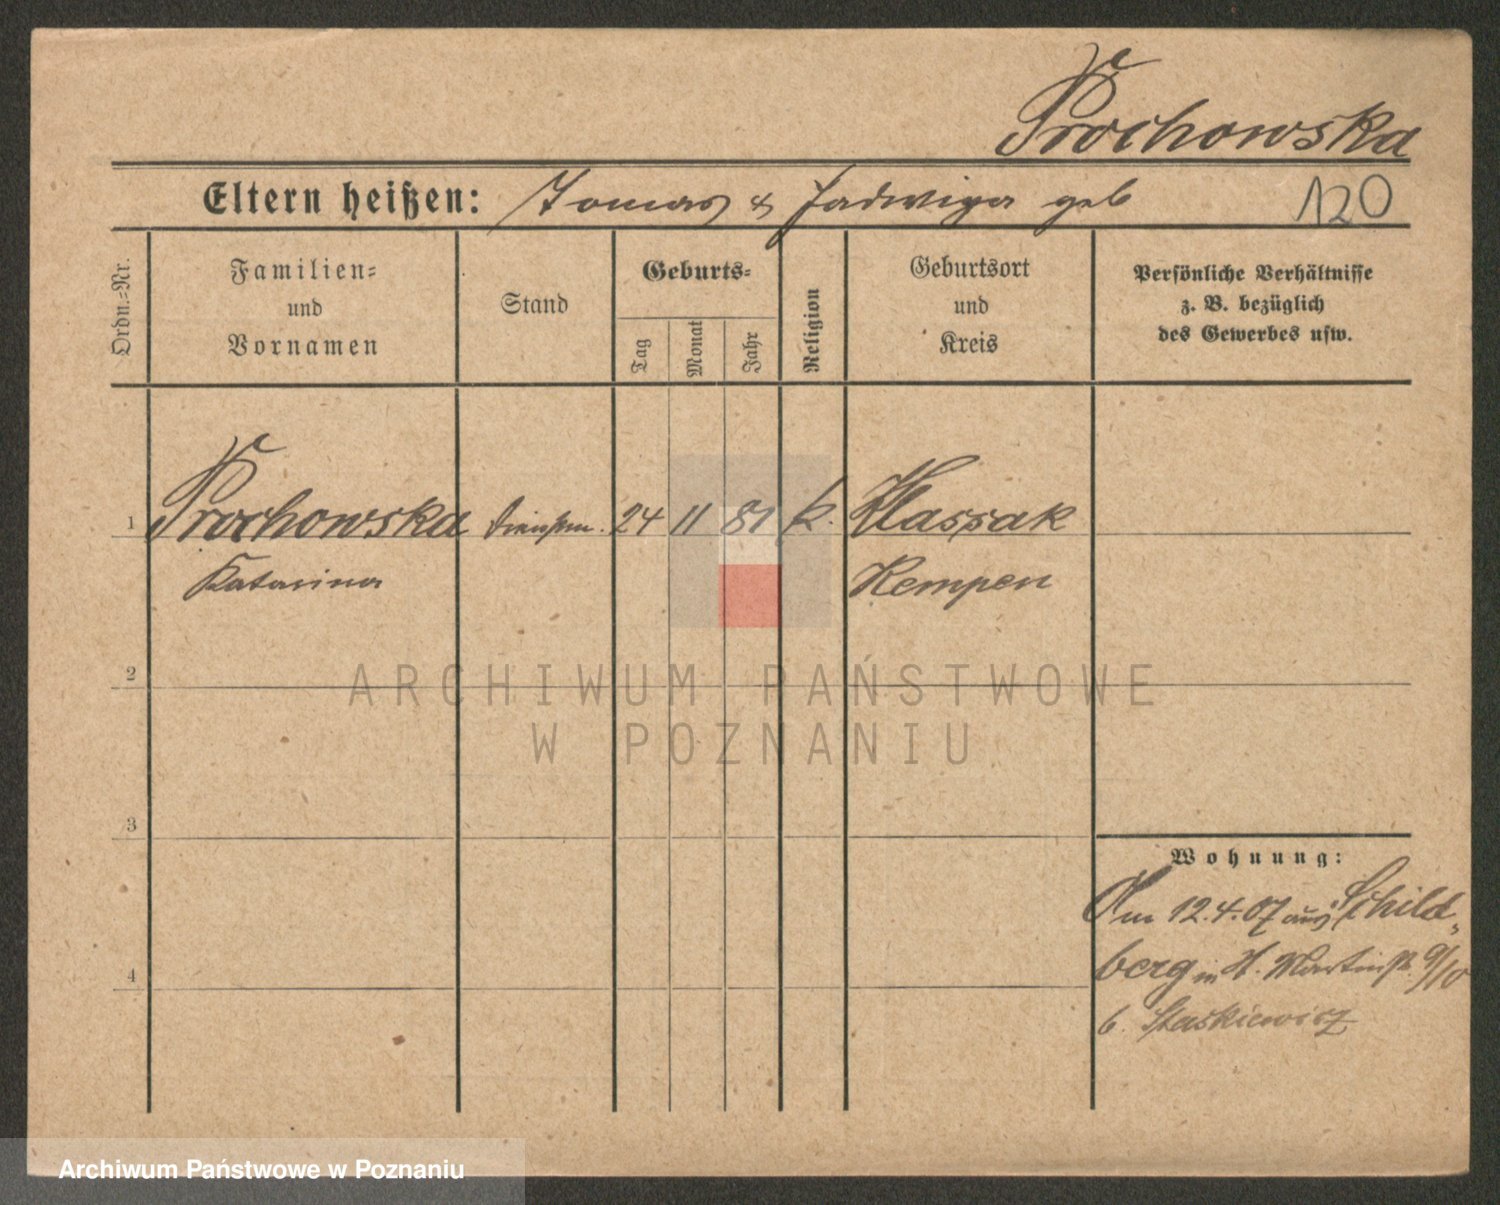 Prochowska
Eltern heißen: Tomas & Jadwiga geb
120
Ordn.-Nr.
Familien-
und
Vornamen
Stand
Geburts-
Tag
Monat
Jahr
Religion
Geburtsort
und
Kreis
Persönliche Verhältnisse
z. B. bezüglich
des Gewerbes usw.
1 Prochowska 24 11 81 k.
Katarina Kempen
2
ARCHIWUM PAŃSTWOWE
W POZNANIU
3
Wohnung:
Am 12.4.07 aus Schild-
4
berg in H. Martinstr. 9/10
b. Staskiewicz
Archiwum Państwowe w Poznaniu